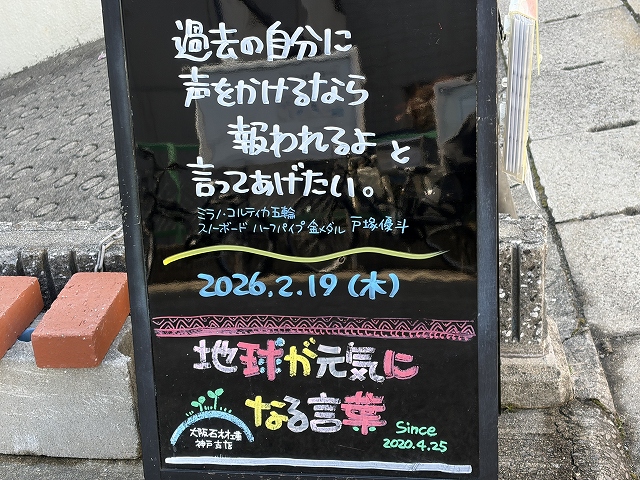 過去の自分に
声をかけるなら
報われるよと
言ってあげたい。
ミラノ・コルティカ五輪
スノーボード ハーフパイプ 金メダル 戸塚優斗
2026.2.19(木)
地球が元気に
なる言葉
大阪石材工事
神戸吉店
Since
2020.4.25